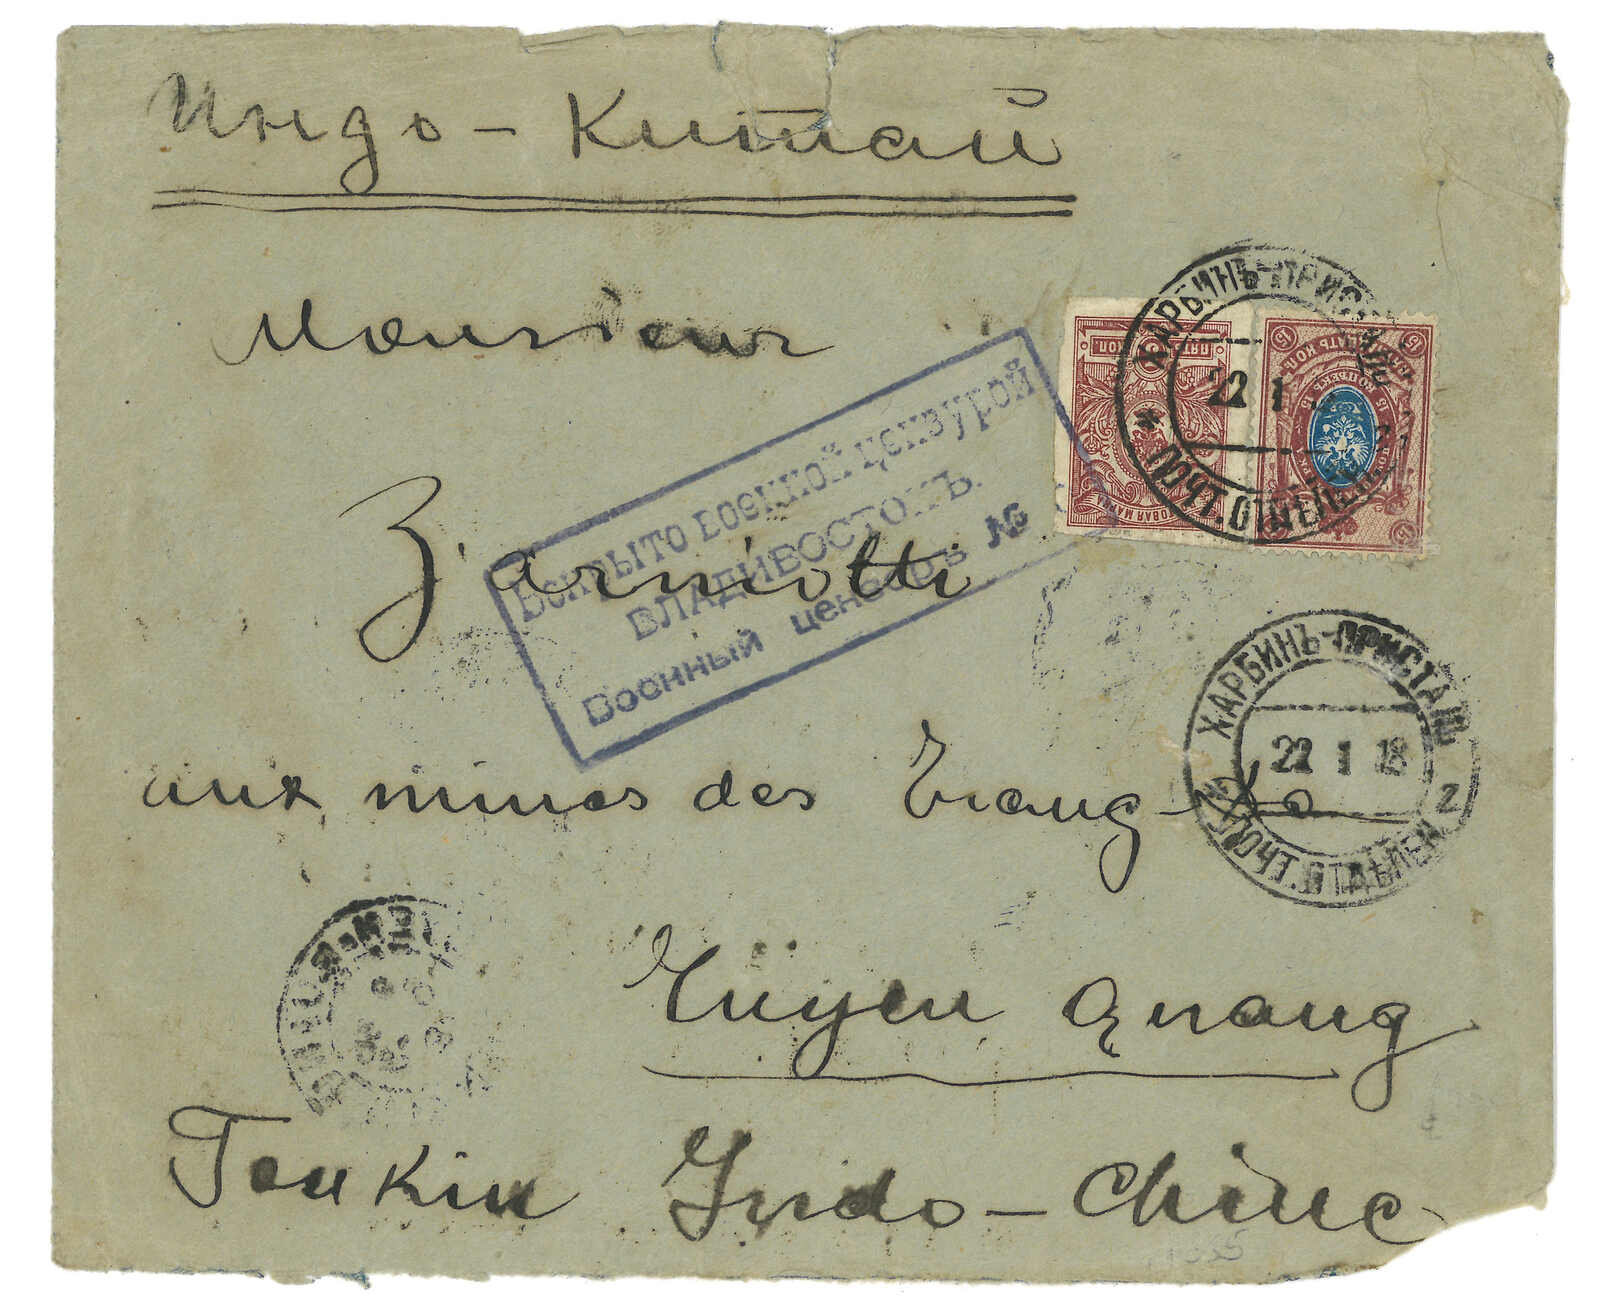 Индо-Китай
Monsieur
Zarniotti
aux mines des Trang-Da
Tuyen Quang
Tonkin Indo-Chine
Вскрыто военной цензурой
ВЛАДИВОСТОКЪ.
Военный цензоръ №
ХАРБИНЪ-ПРИСТАНЬ
22 1
ПОЧТ.ОТДѢЛЕН
ПЯТЬ КОП
5
15
ХАРБИНЪ-ПРИСТАНЬ
22 1 18
2
ПОЧТ.ОТДѢЛЕН